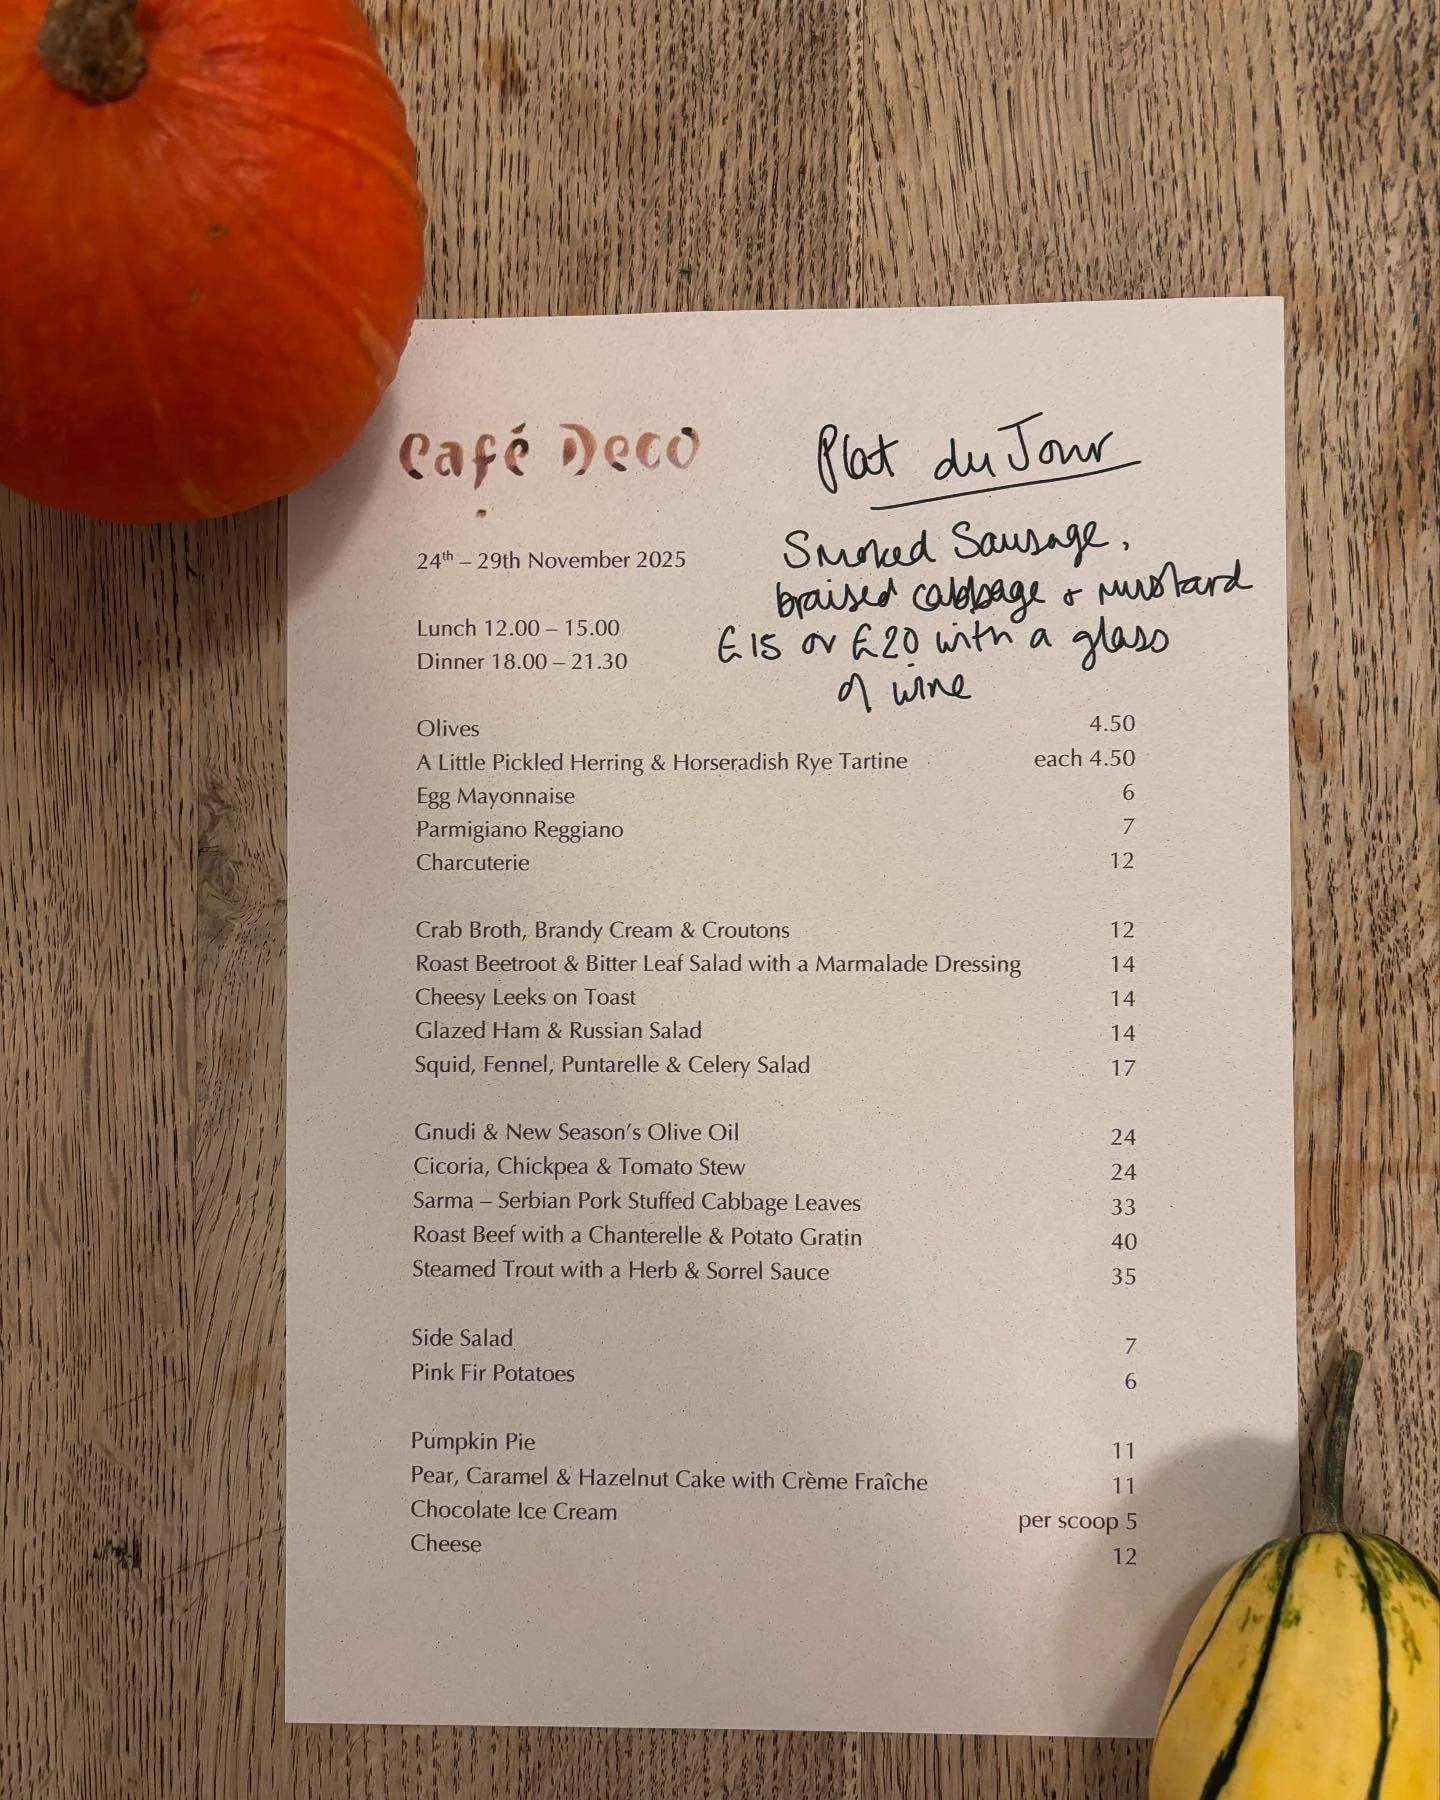 Café Deco
Plat du Jour
Smoked Sausage,
braised cabbage & mustard
£15 or £20 with a glass
of wine
24th – 29th November 2025
Lunch 12.00 – 15.00
Dinner 18.00 – 21.30
Olives 4.50
A Little Pickled Herring & Horseradish Rye Tartine each 4.50
Egg Mayonnaise 6
Parmigiano Reggiano 7
Charcuterie 12
Crab Broth, Brandy Cream & Croutons 12
Roast Beetroot & Bitter Leaf Salad with a Marmalade Dressing 14
Cheesy Leeks on Toast 14
Glazed Ham & Russian Salad 14
Squid, Fennel, Puntarelle & Celery Salad 17
Gnudi & New Season’s Olive Oil 24
Cicoria, Chickpea & Tomato Stew 24
Sarma – Serbian Pork Stuffed Cabbage Leaves 33
Roast Beef with a Chanterelle & Potato Gratin 40
Steamed Trout with a Herb & Sorrel Sauce 35
Side Salad 7
Pink Fir Potatoes 6
Pumpkin Pie 11
Pear, Caramel & Hazelnut Cake with Crème Fraîche 11
Chocolate Ice Cream per scoop 5
Cheese 12